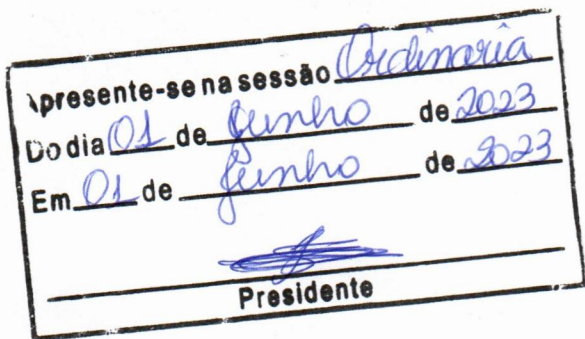 Apresente-se na sessão Ordinaria
Do dia 01 de Junho de 2023
Em 01 de Junho de 2023
Presidente